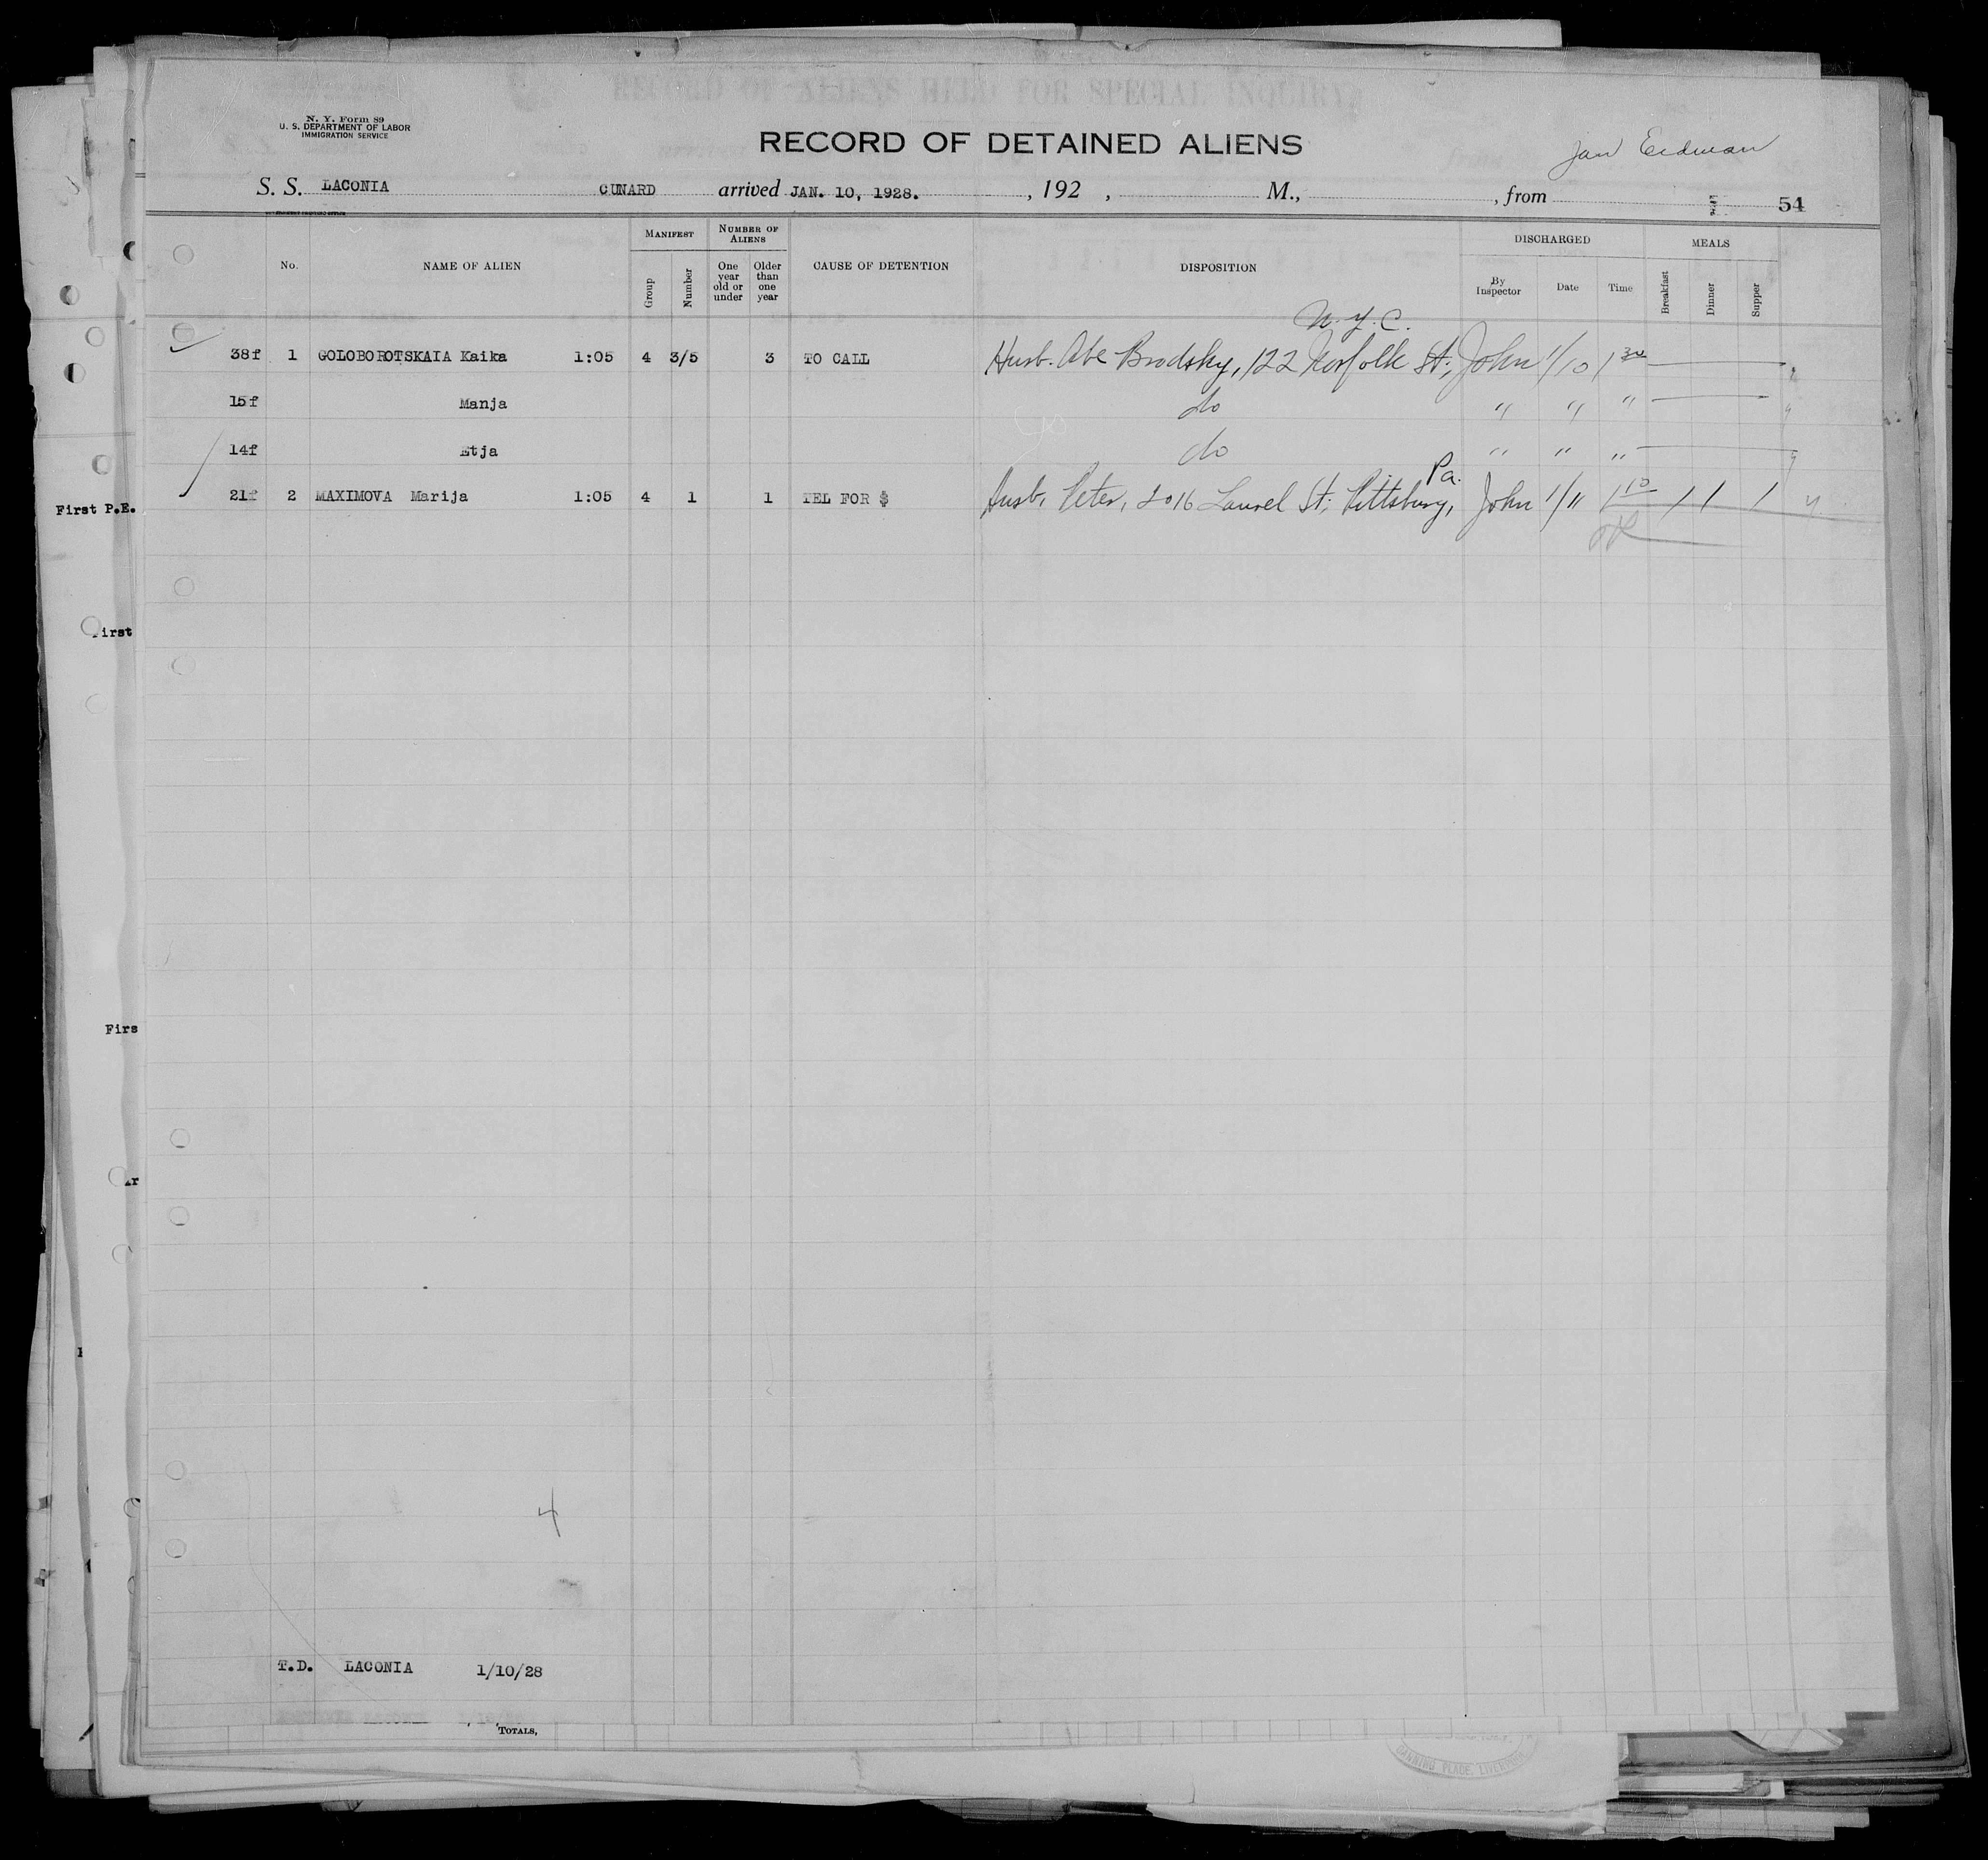 RECORD OF ALIENS HELD FOR SPECIAL INQUIRY
N. Y. Form 89
U. S. DEPARTMENT OF LABOR
IMMIGRATION SERVICE
RECORD OF DETAINED ALIENS
Jan Erdman
S. S. LACONIA CUNARD arrived JAN. 10, 1928. , 192 , M., , from 54
No. NAME OF ALIEN MANIFEST Group Number NUMBER OF ALIENS One year old or under Older than one year CAUSE OF DETENTION DISPOSITION DISCHARGED By Inspector Date Time MEALS Breakfast Dinner Supper
N.Y.C.
38f 1 GOLOBOROTSKAIA Kaika 1:05 4 3/5 3 TO CALL Husb. Abe Brodsky, 122 Norfolk St., John 1/10 1 30
15f Manja do " " "
14f Etja do " " "
Pa.
21f 2 MAXIMOVA Marija 1:05 4 1 1 TEL FOR $ Husb. Peter, 2016 Laurel St., Pittsburg, John 1/11 1 10 1 1 1
First P.E.
First
Firs
4
T.D. LACONIA 1/10/28
TOTALS,
CANNING PLACE, LIVERPOOL